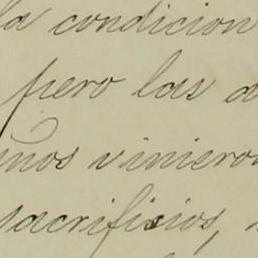 la condicion
pero las
vinieron
sacrificios,